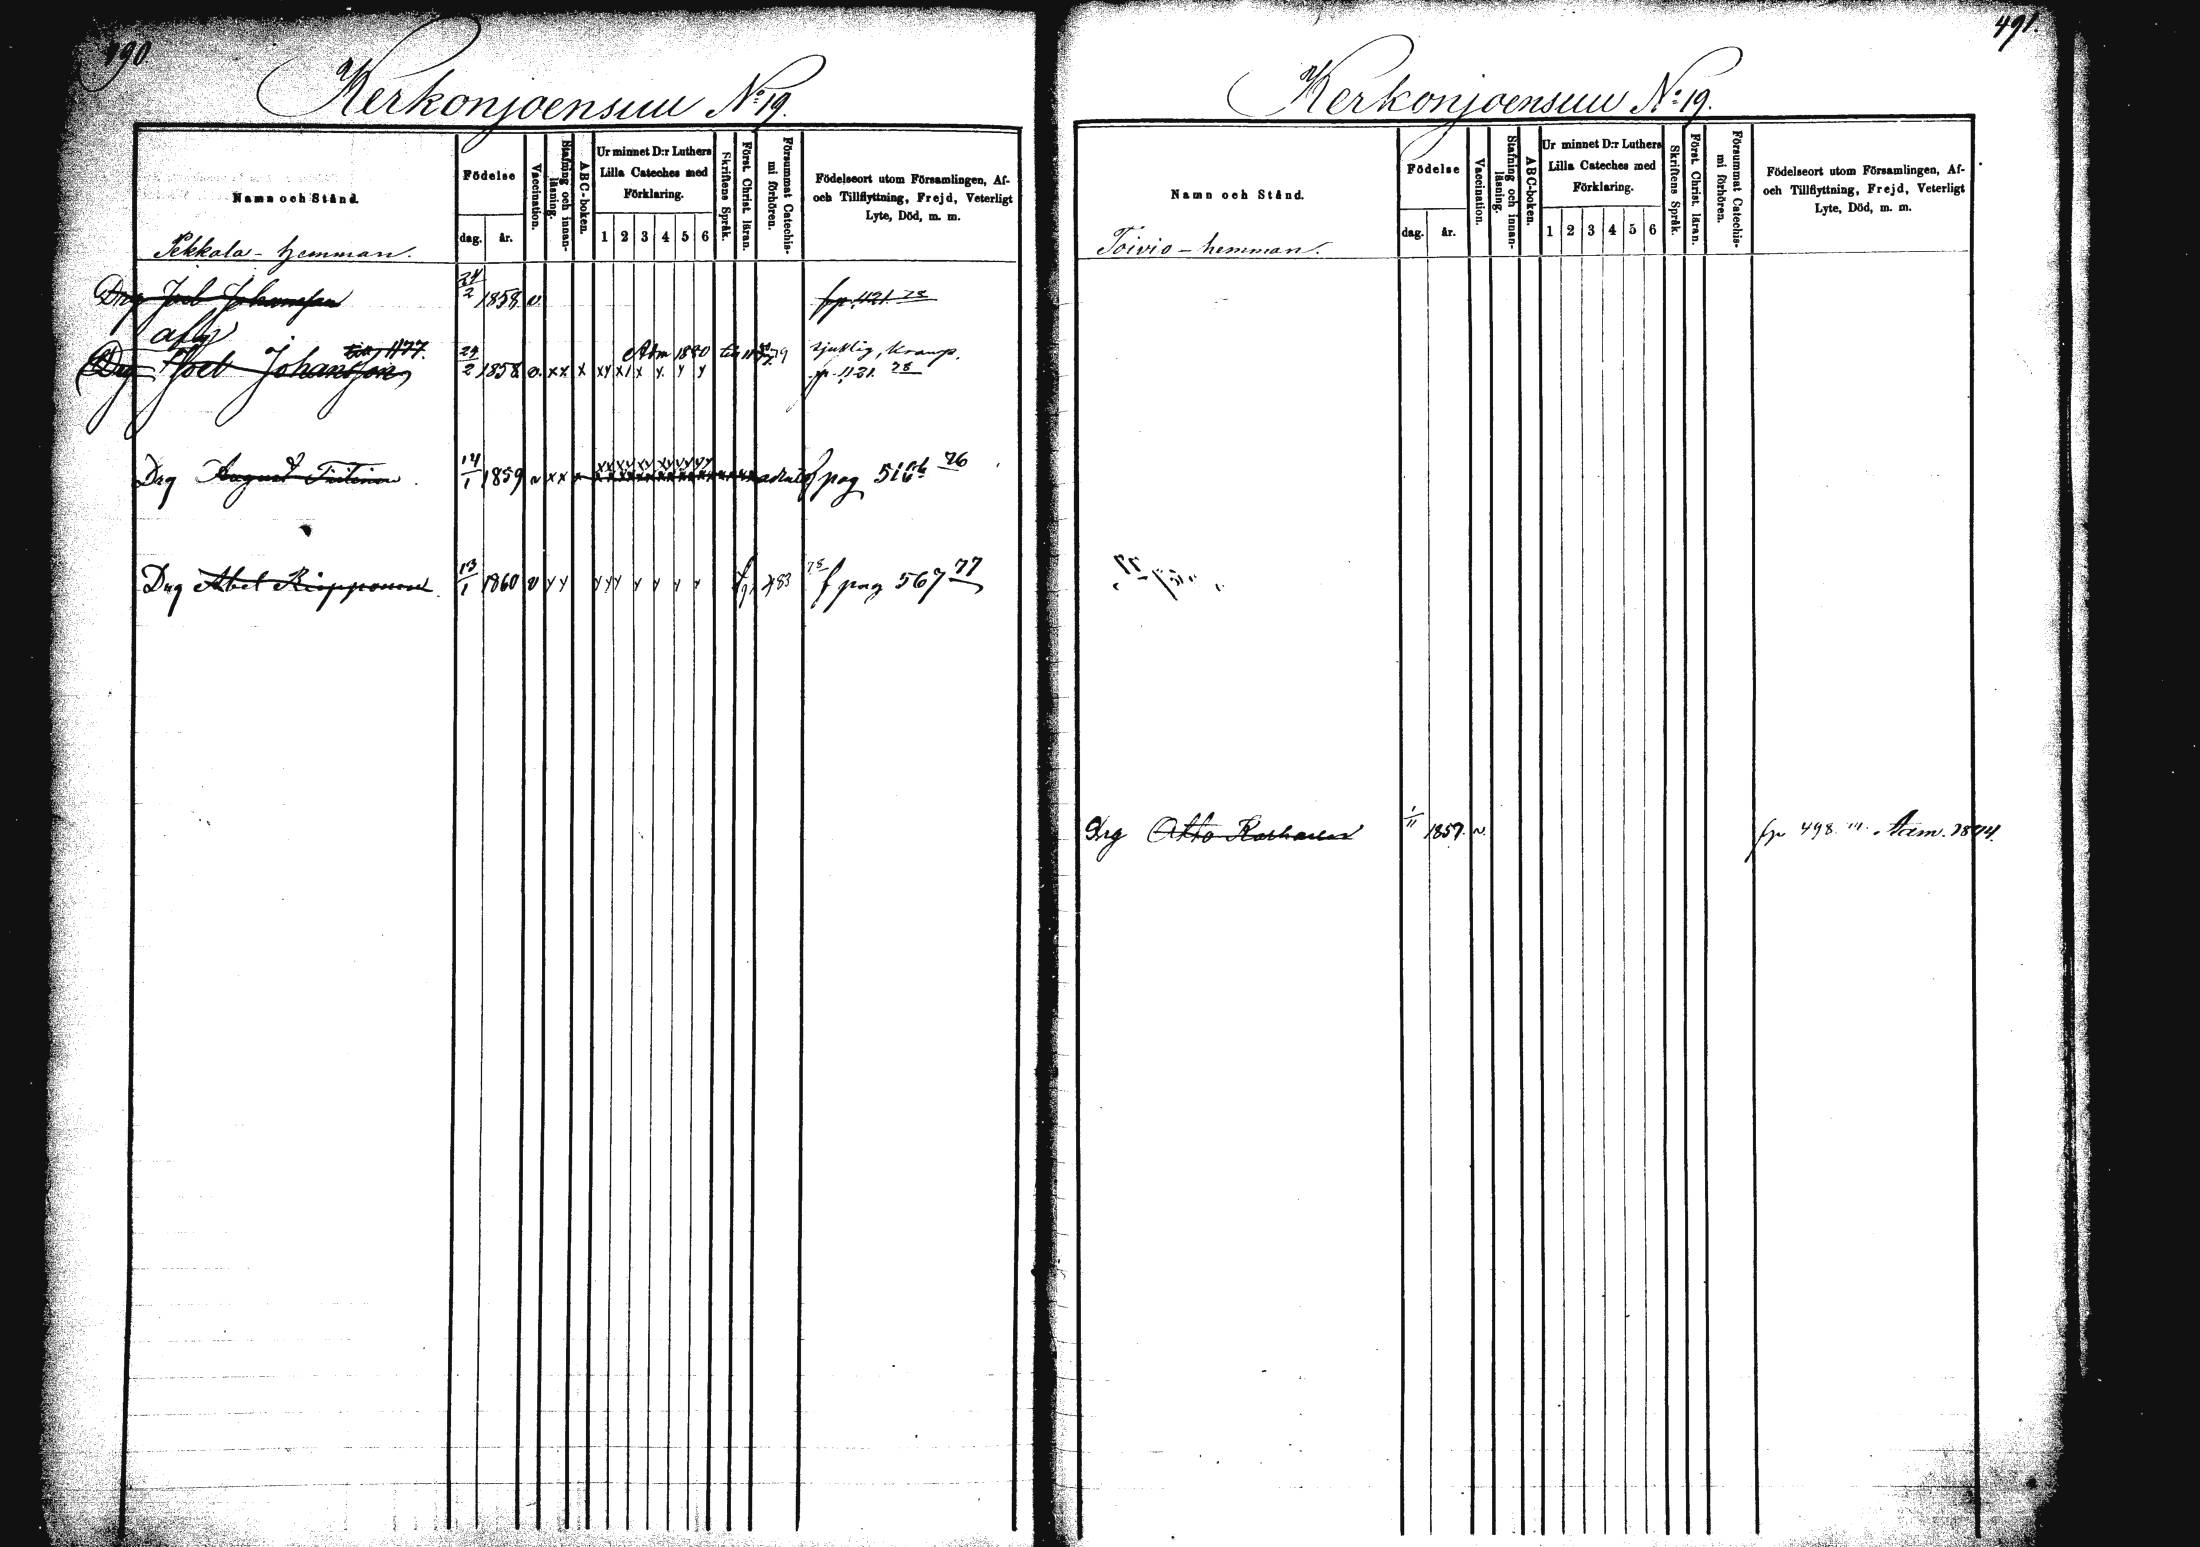 490.
Kerkonjoensuu No 19.
Namn och Stånd.
Födelse
dag.
år.
Vaccination.
Stafning och innan-
läsning.
ABC-boken.
Ur minnet D:r Luthers
Lilla Cateches med
Förklaring.
1 2 3 4 5 6
Skriftens Språk.
Först. Christ. läran.
Försummat Catechis-
mi förhören.
Födelseort utom Församlingen, Af-
och Tillflyttning, Frejd, Veterligt
Lyte, Död, m. m.
Pekkala - hemman.
Drg Joel Johansson 24/2 1858. v. fp. 1121 78
1177.
Adm 1880
sjuklig, kramp.
Drg Joel Johansson 24/2 1858 v. xx x p. 1121. 78
Drg August 14/1 1859 v xx x f pag 516 76
Drg Abel Ripponen 13/1 1860 v yy f pag 567 77
491.
Kerkonjoensuu No 19.
Namn och Stånd.
Födelse
dag.
år.
Vaccination.
Stafning och innan-
läsning.
ABC-boken.
Ur minnet D:r Luthers
Lilla Cateches med
Förklaring.
1 2 3 4 5 6
Skriftens Språk.
Först. Christ. läran.
Försummat Catechis-
mi förhören.
Födelseort utom Församlingen, Af-
och Tillflyttning, Frejd, Veterligt
Lyte, Död, m. m.
Toivio - hemman.
Drg Otto 1/11 1857. v. fp 498. Adm. 1874.